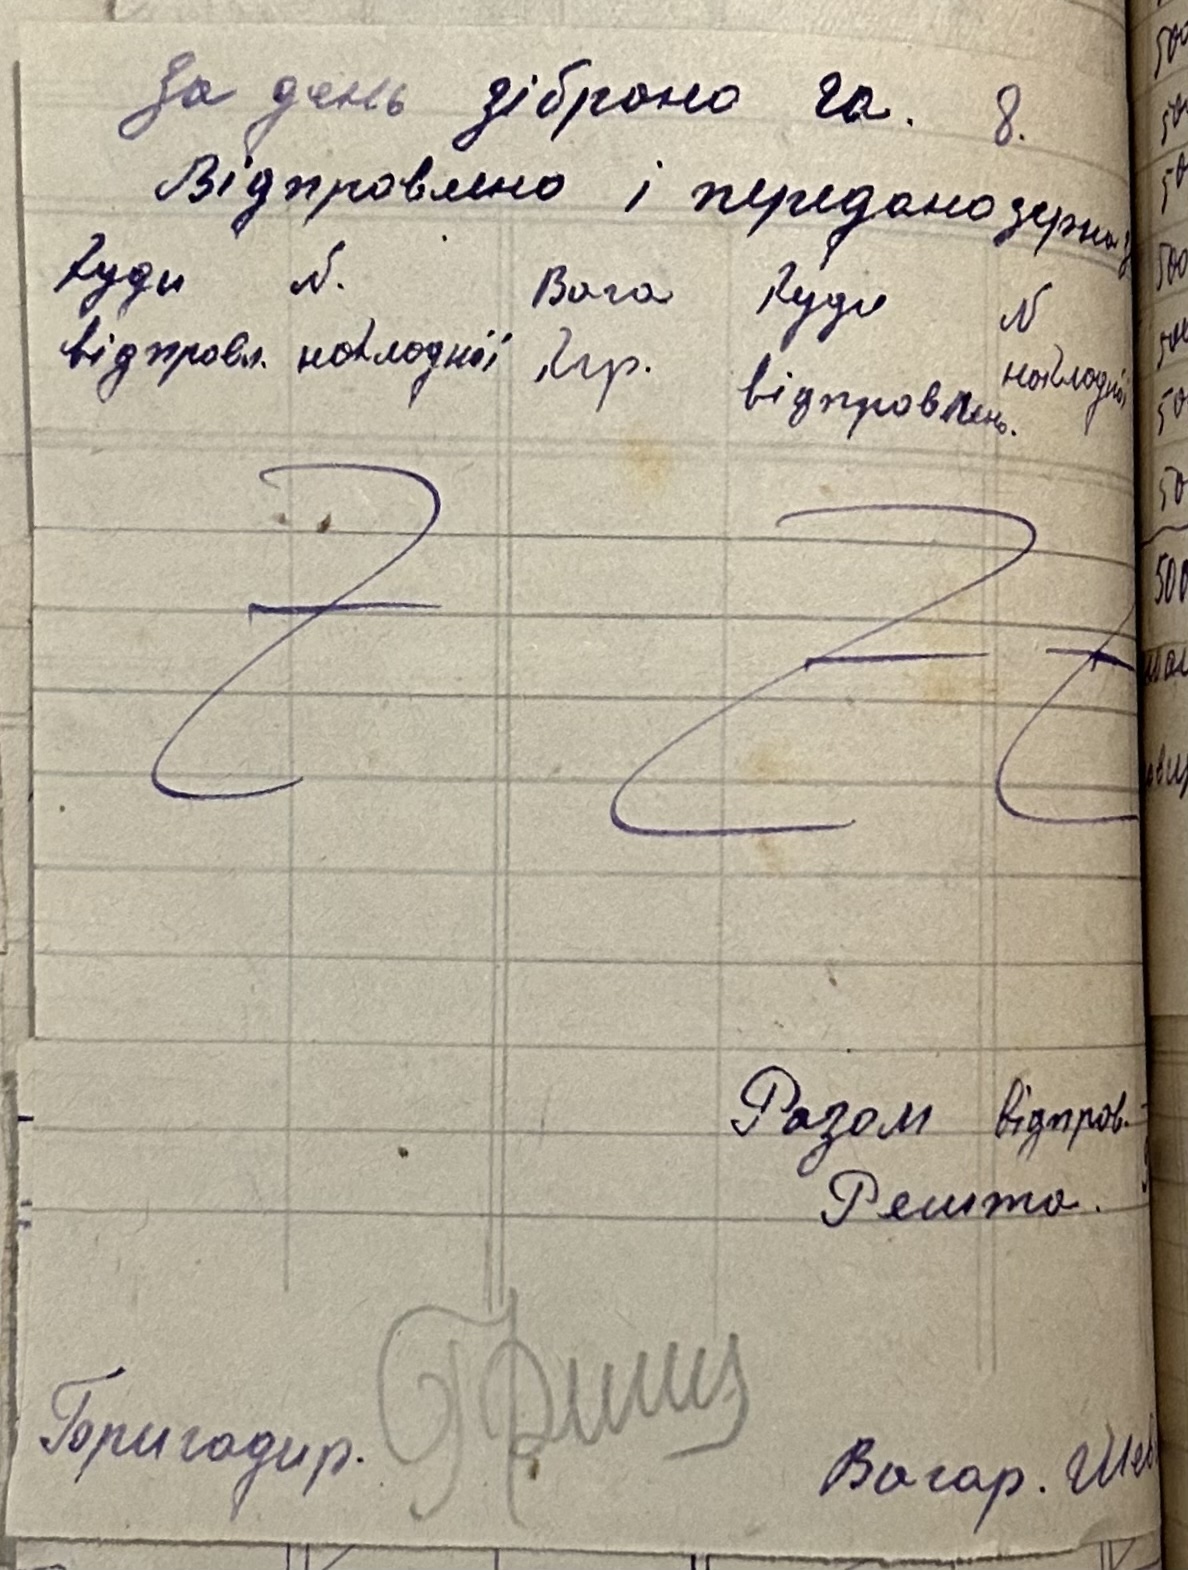 За день зібрано га. 8.
Відправлено і передано зерна
Куди N. Вага Куди N
відправл. накладної Кгр. відправлено. накладної
Разом відправ.
Решта.
Бригадир.
Вагар. Шев
500
50
50
500
500
50
50
500